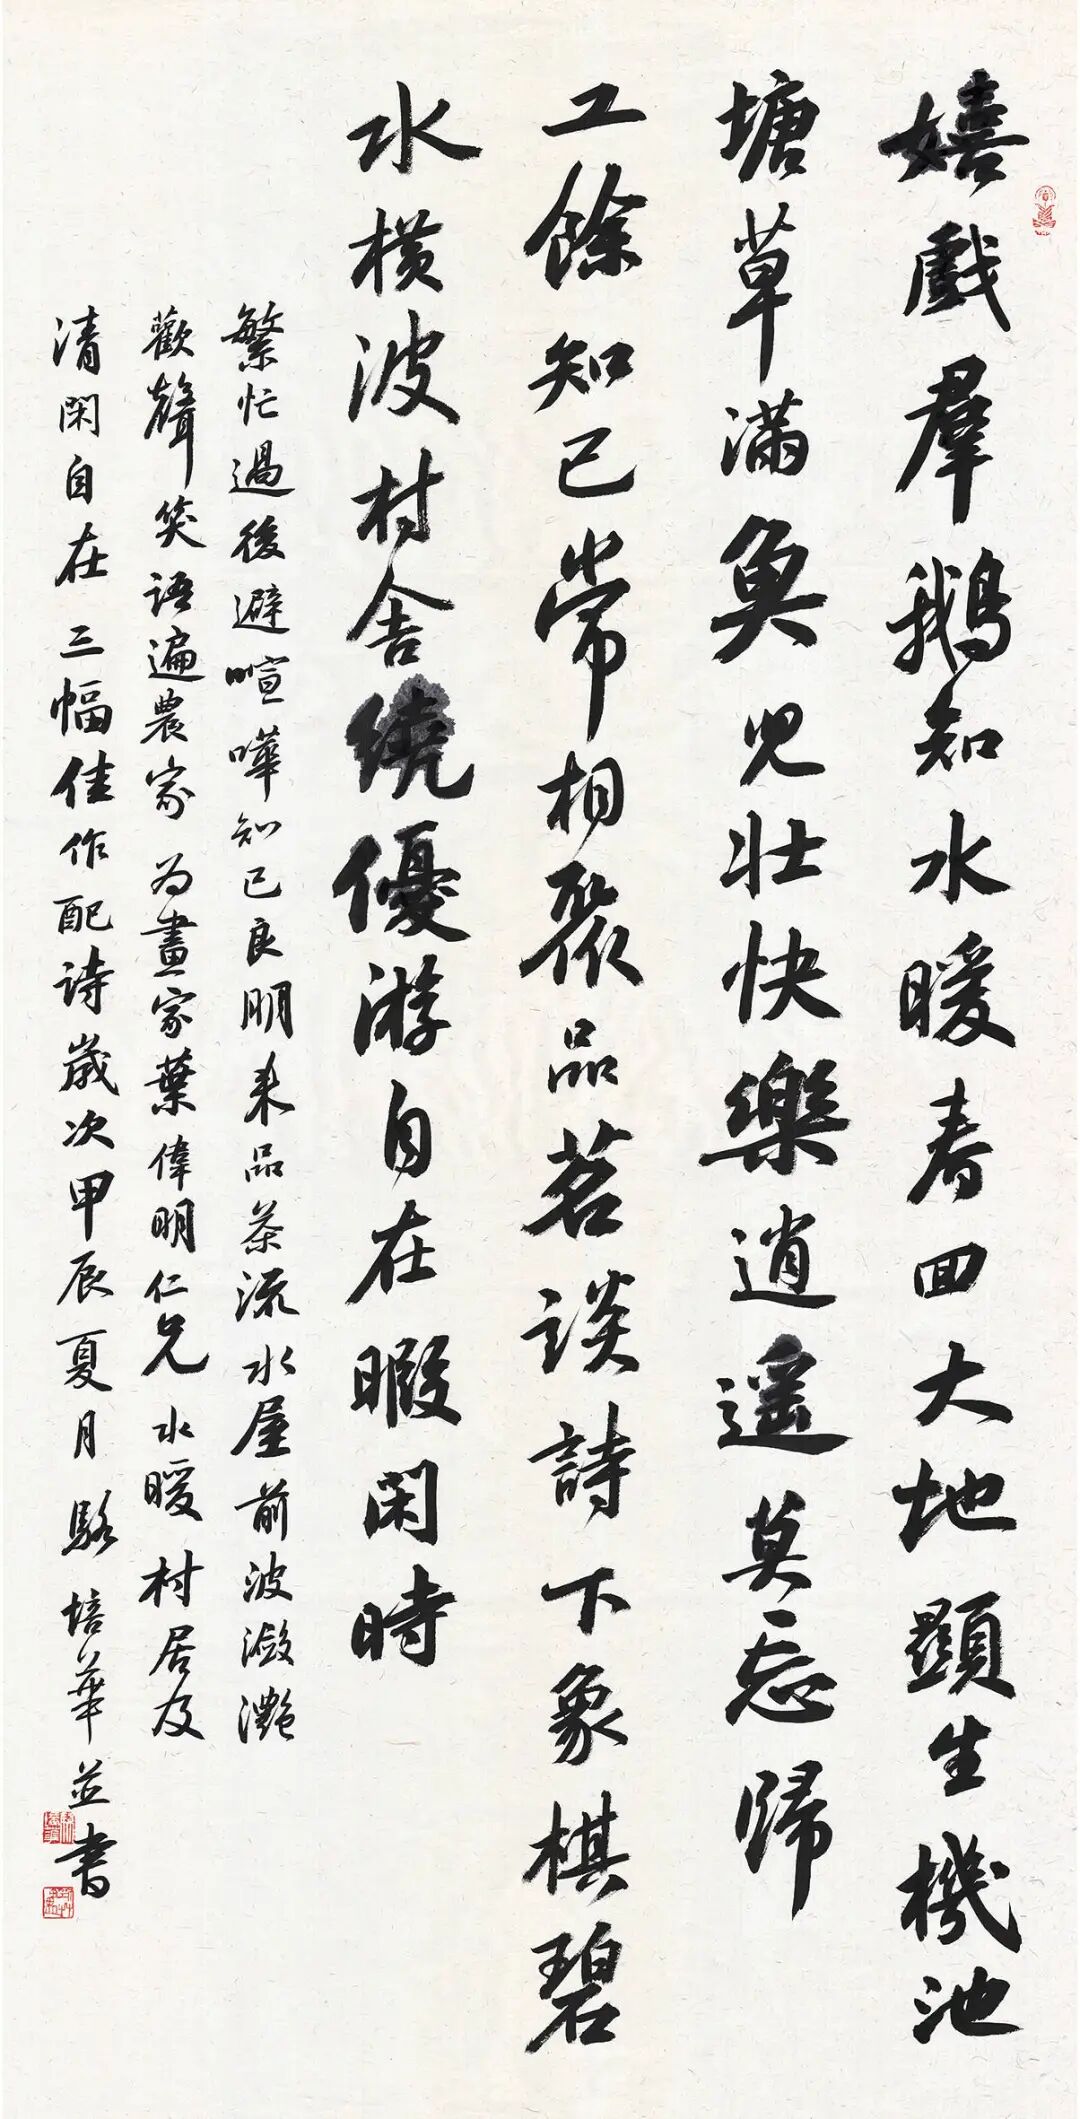 嬉戲羣鵝知水暖春回大地顯生機池
塘草滿魚兒壯快樂逍遥莫忘歸
工餘知己常相聚品茗談詩下象棋碧
水橫波村舍繞優游自在暇閑時
繁忙過後避喧嘩知己良朋來品茶流水屋前波瀲灩
歡聲笑語遍農家為畫家葉偉明仁兄水暖村居及
清閑自在三幅佳作配詩歲次甲辰夏月駱培華並書